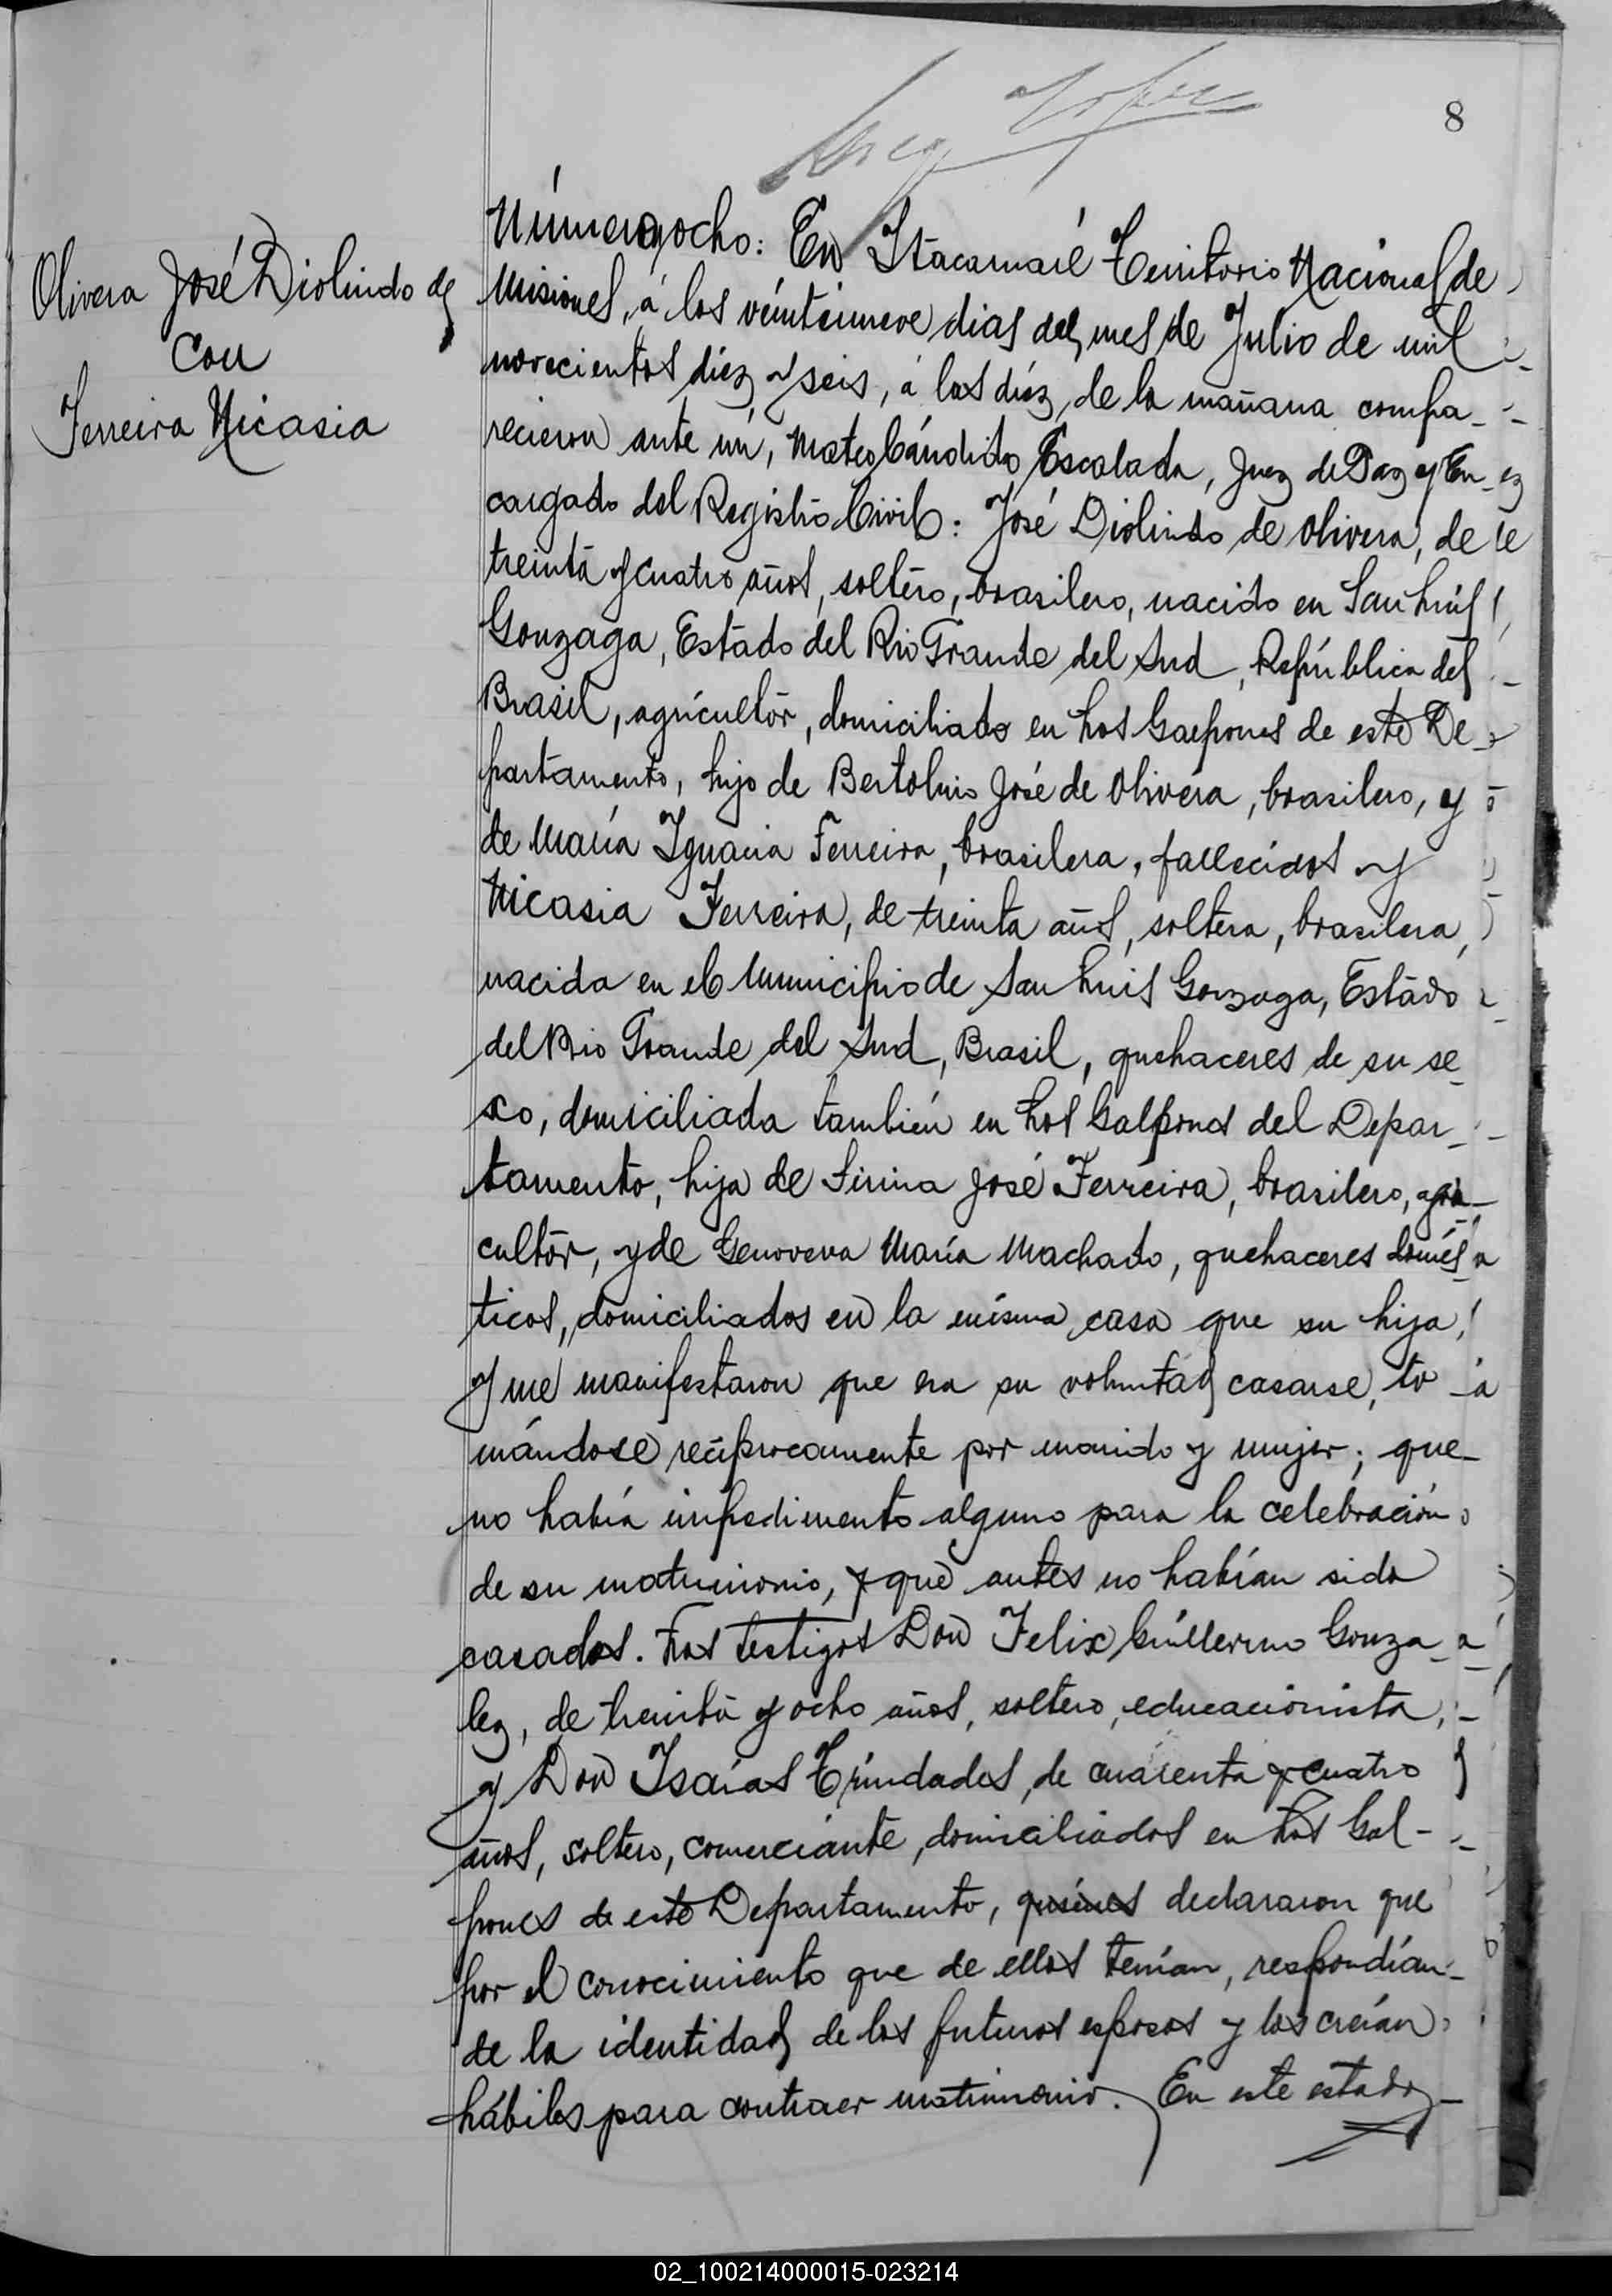 8
Olivera José Diolindo de
Con
Ferreira Nicasia
Número ocho: En Itacaruaré Territorio Nacional de
Misiones, á los veintinueve dias del mes de Julio de mil
novecientos diez y seis, á las diéz, de la mañana compa-
recieron ante mi, Mateo Cándido Escalada, Juez de Paz y En-
cargado del Registro Civil: José Diolindo de Olivera, de
treinta y cuatro años, soltero, brasilero, nacido en San Luis
Gonzaga, Estado del Rio Grande del Sud, República del
Brasil, agricultor, domiciliado en Los Galpones de este De-
partamento, hijo de Bertolino José de Olivera, brasilero, y
de María Ignacia Ferreira, brasilera, fallecidos y
Nicasia Ferreira, de treinta años, soltera, brasilera,
nacida en el Municipio de San Luis Gonzaga, Estado
del Rio Grande del Sud, Brasil, quehaceres de su se-
xo, domiciliada también en Los Galpones del Depar-
tamento, hija de José Ferreira, brasilero, agri-
cultor, y de Genoveva María Machado, quehaceres domés-
ticos, domiciliados en la misma casa que su hija,
y me manifestaron que era su voluntad casarse, to-
mándose recíprocamente por marido y mujer; que
no había impedimento alguno para la celebración
de su matrimonio, y que antes no habían sido
casados. Los testigos Don Felix Guillermo Gonza-
lez, de treinta y ocho años, soltero, educacionista,
y Don Isaías Trindades, de cuarenta y cuatro
años, soltero, comerciante, domiciliados en Los Gal-
pones de este Departamento, quiénes declararon que
por el conocimiento que de ellos tenían, respondían
de la identidad de los futuros esposos y los creían
hábiles para contraer matrimonio. En este estado
02_100214000015-023214